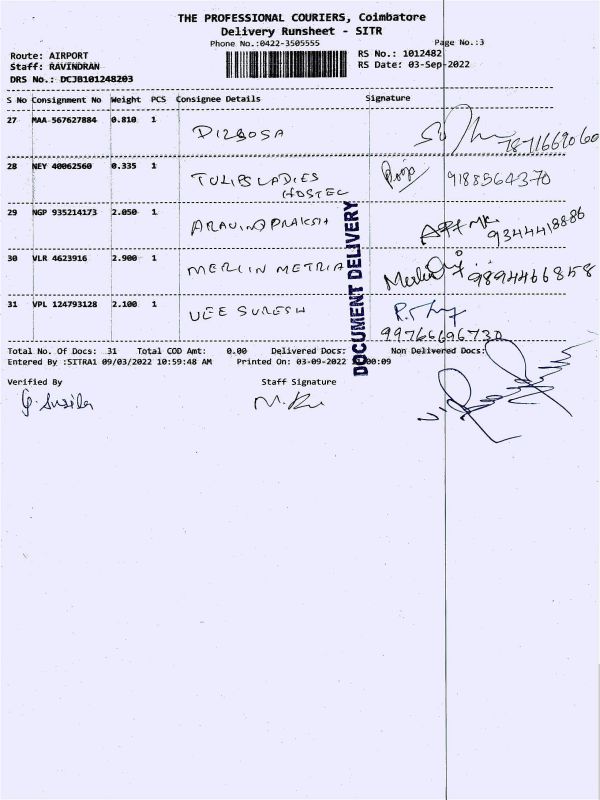 THE PROFESSIONAL COURIERS, Coimbatore
Delivery Runsheet - SITR
Phone No.:0422-3505555 Page No.:3
Route: AIRPORT RS No.: 1012482
Staff: RAVINDRAN RS Date: 03-Sep-2022
DRS No.: DCJB101248203
S No Consignment No Weight PCS Consignee Details Signature
27 MAA 567627884 0.810 1 DIZBOSA
28 NEY 40062560 0.335 1 TULIPS LADIES Pooja 9188564370
HOSTEL
29 NGP 935214173 2.050 1 ARAVIND PRAKSH 9344418886
30 VLR 4623916 2.900 1 MERLIN METRIA Merlin 9894466858
31 VPL 124793128 2.100 1 VEE SURESH
99766696730
DOCUMENT DELIVERY
Total No. Of Docs: 31 Total COD Amt: 0.00 Delivered Docs: Non Delivered Docs:
Entered By :SITRA1 09/03/2022 10:59:48 AM Printed On: 03-09-2022 :00:09
Verified By Staff Signature
G. Susila